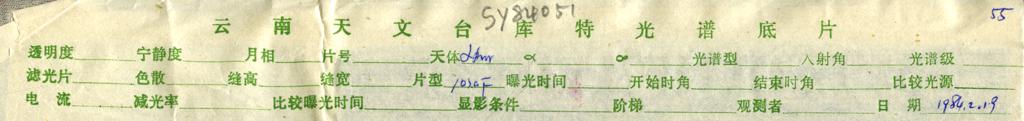 SY84051
55
云南天文台库特光谱底片
透明度 宁静度 月相 片号 天体 α ∞ 光谱型 入射角 光谱级
滤光片 色散 缝高 缝宽 片型 103aF 曝光时间 开始时角 结束时角 比较光源
电流 减光率 比较曝光时间 显影条件 阶梯 观测者 日期 1984.2.19